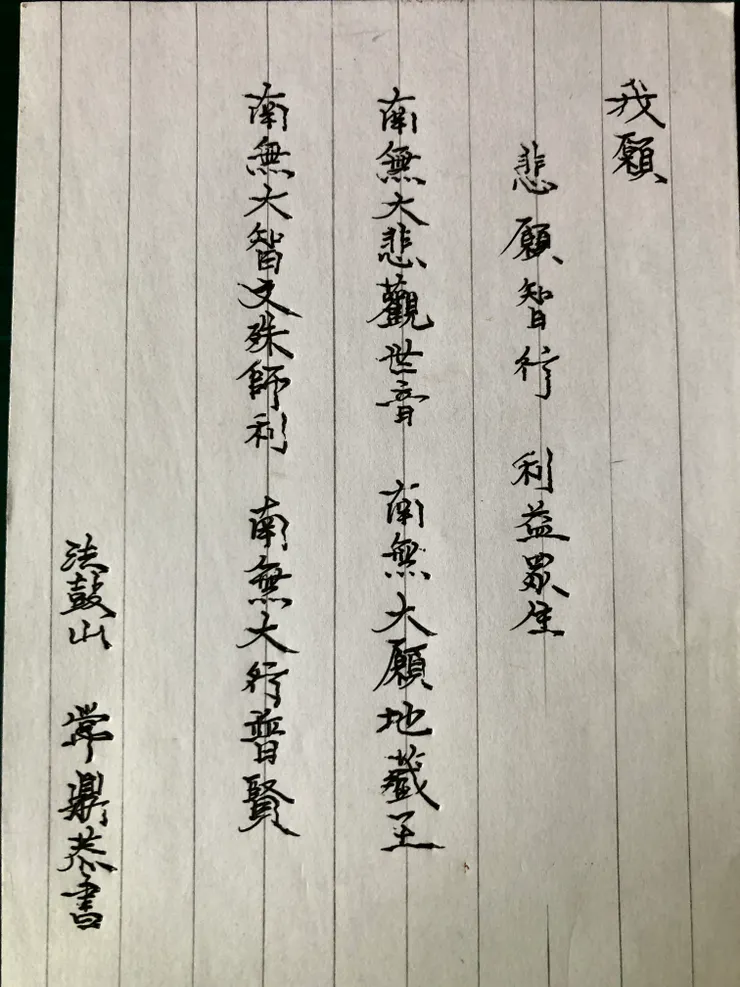 我願
悲願智行 利益眾生
南無大悲觀世音 南無大願地藏王
南無大智文殊師利 南無大行普賢
法鼓山 常鼎恭書